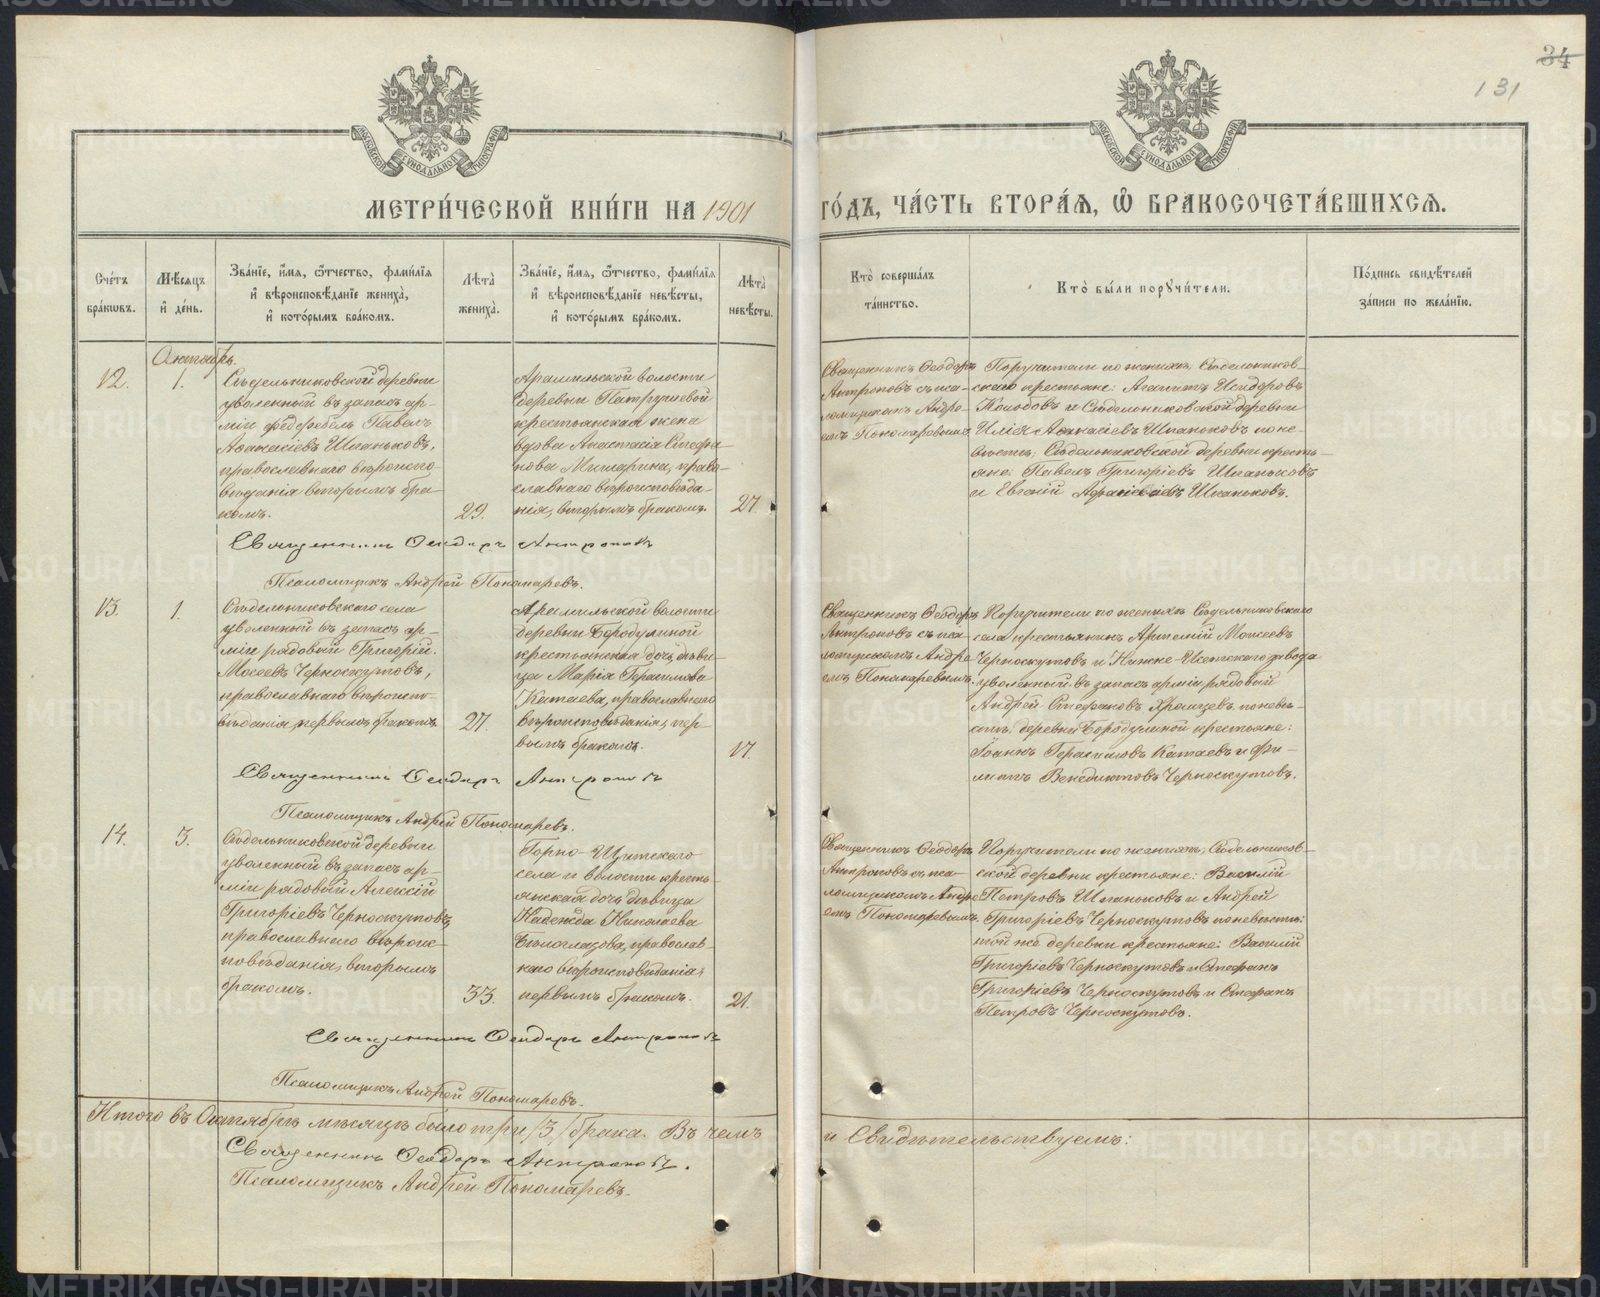 34
131
МЕТРИ́ЧЕСКОЙ КНИ́ГИ НА 1901
ГО́ДЪ, ЧА́СТЬ ВТОРА́Я, Ѽ БРАКОСОЧЕТА́ВШИХСЯ.
Сче́тъ бра́кωвъ.
Мѣ́сяцъ и҆ де́нь.
Зва́нїе, и҆́мя, ѻ҆́тчество, фами́лїя и҆ вѣроисповѣ́данїе жениха̀, и҆ кото́рымъ бра́комъ.
Лѣ́та жениха̀.
Зва́нїе, и҆́мя, ѻ҆́тчество, фами́лїя и҆ вѣроисповѣ́данїе невѣ́сты, и҆ кото́рымъ бра́комъ.
Лѣ́та невѣ́сты.
Кто̀ соверша́лъ та́инство.
Кто̀ бы́ли порꙋчи́тели.
По́дпись свидѣ́телей за́писи по жела́нїю.
Октябрь.
12.
1.
Сѣдельниковской деревни
уволенный въ запасъ ар-
міи фельдфебель Павелъ
Аѳанасіевъ Шпаньковъ,
православнаго вѣроиспо-
вѣданія вторымъ бра-
комъ.
29.
Арамильской волости
деревни Патрушевой
крестьянская жена
вдова Анастасія Стефа-
нова Мишарина, право-
славнаго вѣроисповѣда-
нія, вторымъ бракомъ.
27.
Священникъ Ѳеодоръ
Антроповъ съ пса-
ломщикомъ Андре-
емъ Пономаревымъ
Поручители по женихѣ: Сѣдельников-
скаго крестьяне: Агапитъ Исидоровъ
и Сѣдельниковской деревни
Илія Аѳанасіевъ Шпаньковъ по не-
вѣстѣ: Сѣдельниковской деревни кресть-
яне: Павелъ Григоріевъ Шпаньковъ
и Евгеній Аѳанасіевъ Шпаньковъ.
Священникъ Ѳеодоръ Антроповъ
Псаломщикъ Андрей Пономаревъ.
13.
1.
Сѣдельниковскаго села
уволенный въ запасъ ар-
міи рядовой Григорій
Моисеевъ Черноскутовъ,
православнаго вѣроиспо-
вѣданія, первымъ бракомъ.
27.
Арамильской волости
деревни Бородулиной
крестьянская дочь дѣви-
ца Марія Герасимова
Катаева, православнаго
вѣроисповѣданія, пер-
вымъ бракомъ.
17.
Священникъ Ѳеодоръ
Антроповъ съ пса-
ломщикомъ Андре-
емъ Пономаревымъ.
Поручители по женихѣ Сѣдельниковскаго
села крестьянинъ Артемій Моисеевъ
Черноскутовъ и Нижне-Исетскаго завода
уволенный въ запасъ арміи рядовой
Андрей Стефановъ Храмцевъ по невѣ-
стѣ: деревни Бородулиной крестьяне:
Іоаннъ Герасимовъ Катаевъ и Фи-
липпъ Венедиктовъ Черноскутовъ.
Священникъ Ѳеодоръ Антроповъ
Псаломщикъ Андрей Пономаревъ.
14.
3.
Сѣдельниковской деревни
уволенный въ запасъ ар-
міи рядовой Алексій
Григоріевъ Черноскутовъ,
православнаго вѣроис-
повѣданія, вторымъ
бракомъ.
33.
Горно-Щитскаго
села и волости кресть-
янская дочь дѣвица
Надежда Николаева
Бѣлоглазова, православ-
наго вѣроисповѣданія,
первымъ бракомъ.
21.
Священникъ Ѳеодоръ
Антроповъ съ пса-
ломщикомъ Андре-
емъ Пономаревымъ.
Поручители по женихѣ: Сѣдельников-
ской деревни крестьяне: Василій
Петровъ Шпаньковъ и Андрей
Григоріевъ Черноскутовъ по невѣстѣ:
той же деревни крестьяне: Василій
Григоріевъ Черноскутовъ и Стефанъ
Григоріевъ Черноскутовъ и Стефанъ
Петровъ Черноскутовъ.
Священникъ Ѳеодоръ Антроповъ
Псаломщикъ Андрей Пономаревъ.
Итого въ Октябрѣ мѣсяцѣ было три /3/ брака. Въ чемъ
и Свидѣтельствуемъ:
Священникъ Ѳеодоръ Антроповъ.
Псаломщикъ Андрей Пономаревъ.
METRIKI.GASO-URAL.RU